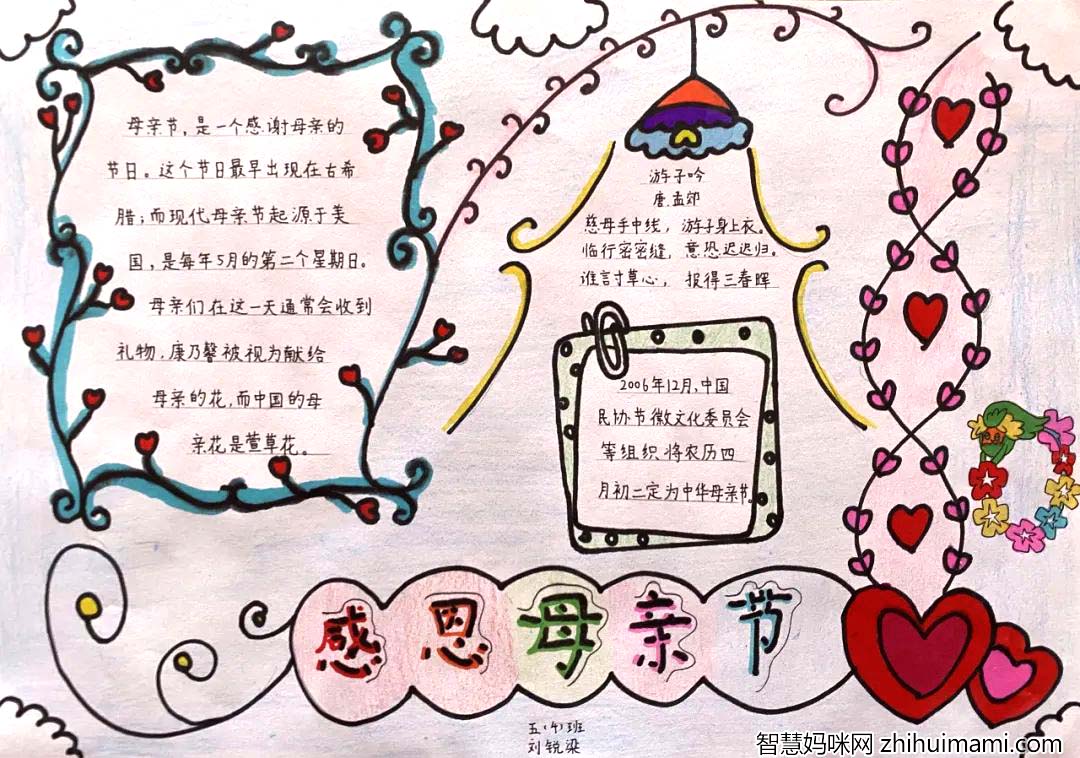 母亲节，是一个感谢母亲的
节日。这个节日最早出现在古希
腊；而现代母亲节起源于美
国，是每年5月的第二个星期日。
母亲们在这一天通常会收到
礼物，康乃馨被视为献给
母亲的花，而中国的母
亲花是萱草花。
游子吟
唐.孟郊
慈母手中线，游子身上衣。
临行密密缝，意恐迟迟归。
谁言寸草心，报得三春晖
2006年12月，中国
民协节徽文化委员会
等组织将农历四
月初二定为中华母亲节。
感恩母亲节
五（4）班
刘锐梁
智慧妈咪网 zhihuimami.com